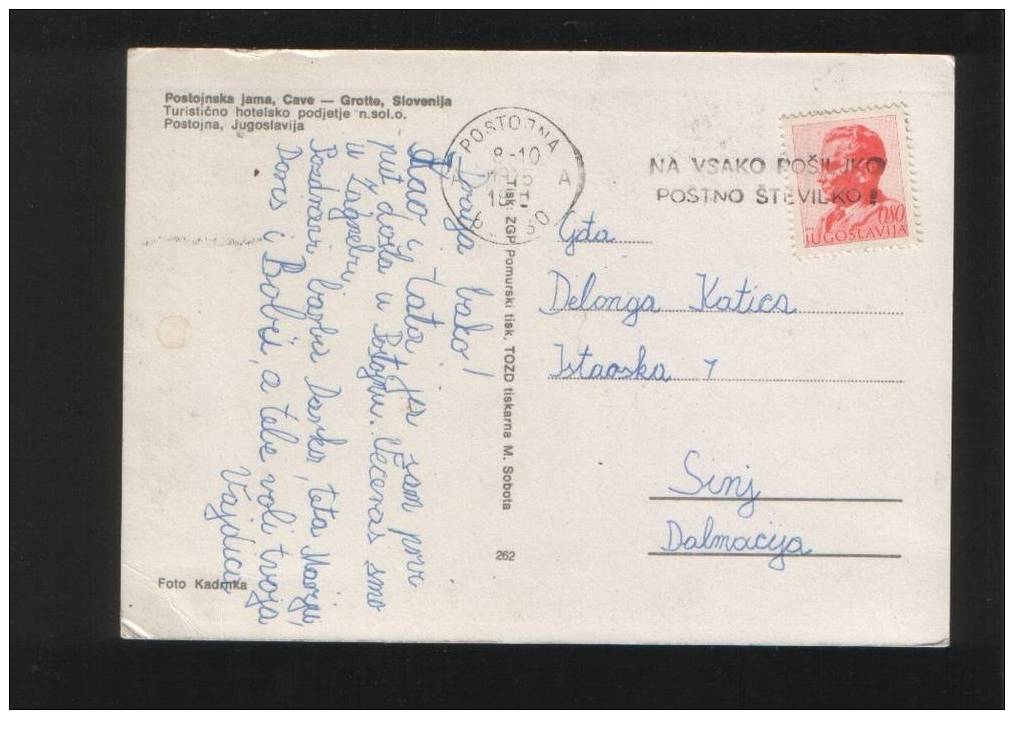 Postojnska jama, Cave — Grotte, Slovenija
Turistično hotelsko podjetje n.sol.o.
Postojna, Jugoslavija
POSTOJNA
8-10
A A
NA VSAKO POŠILJKO
POŠTNO ŠTEVILKO!
0,80
JUGOSLAVIJA
Draga bako!
tata ja sam prvi
put došla u Postojnu. Večeras smo
u Zagrebu.
Pozdravi barbu Darka, teta Mariju,
Doris i Bobci, a tebe voli tvoja
Tisk: ZGP Pomurski tisk, TOZD tiskarna M. Sobota
262
Foto Kadrnka
Gđa
Delonga Katica
Istarska 7
Sinj
Dalmacija